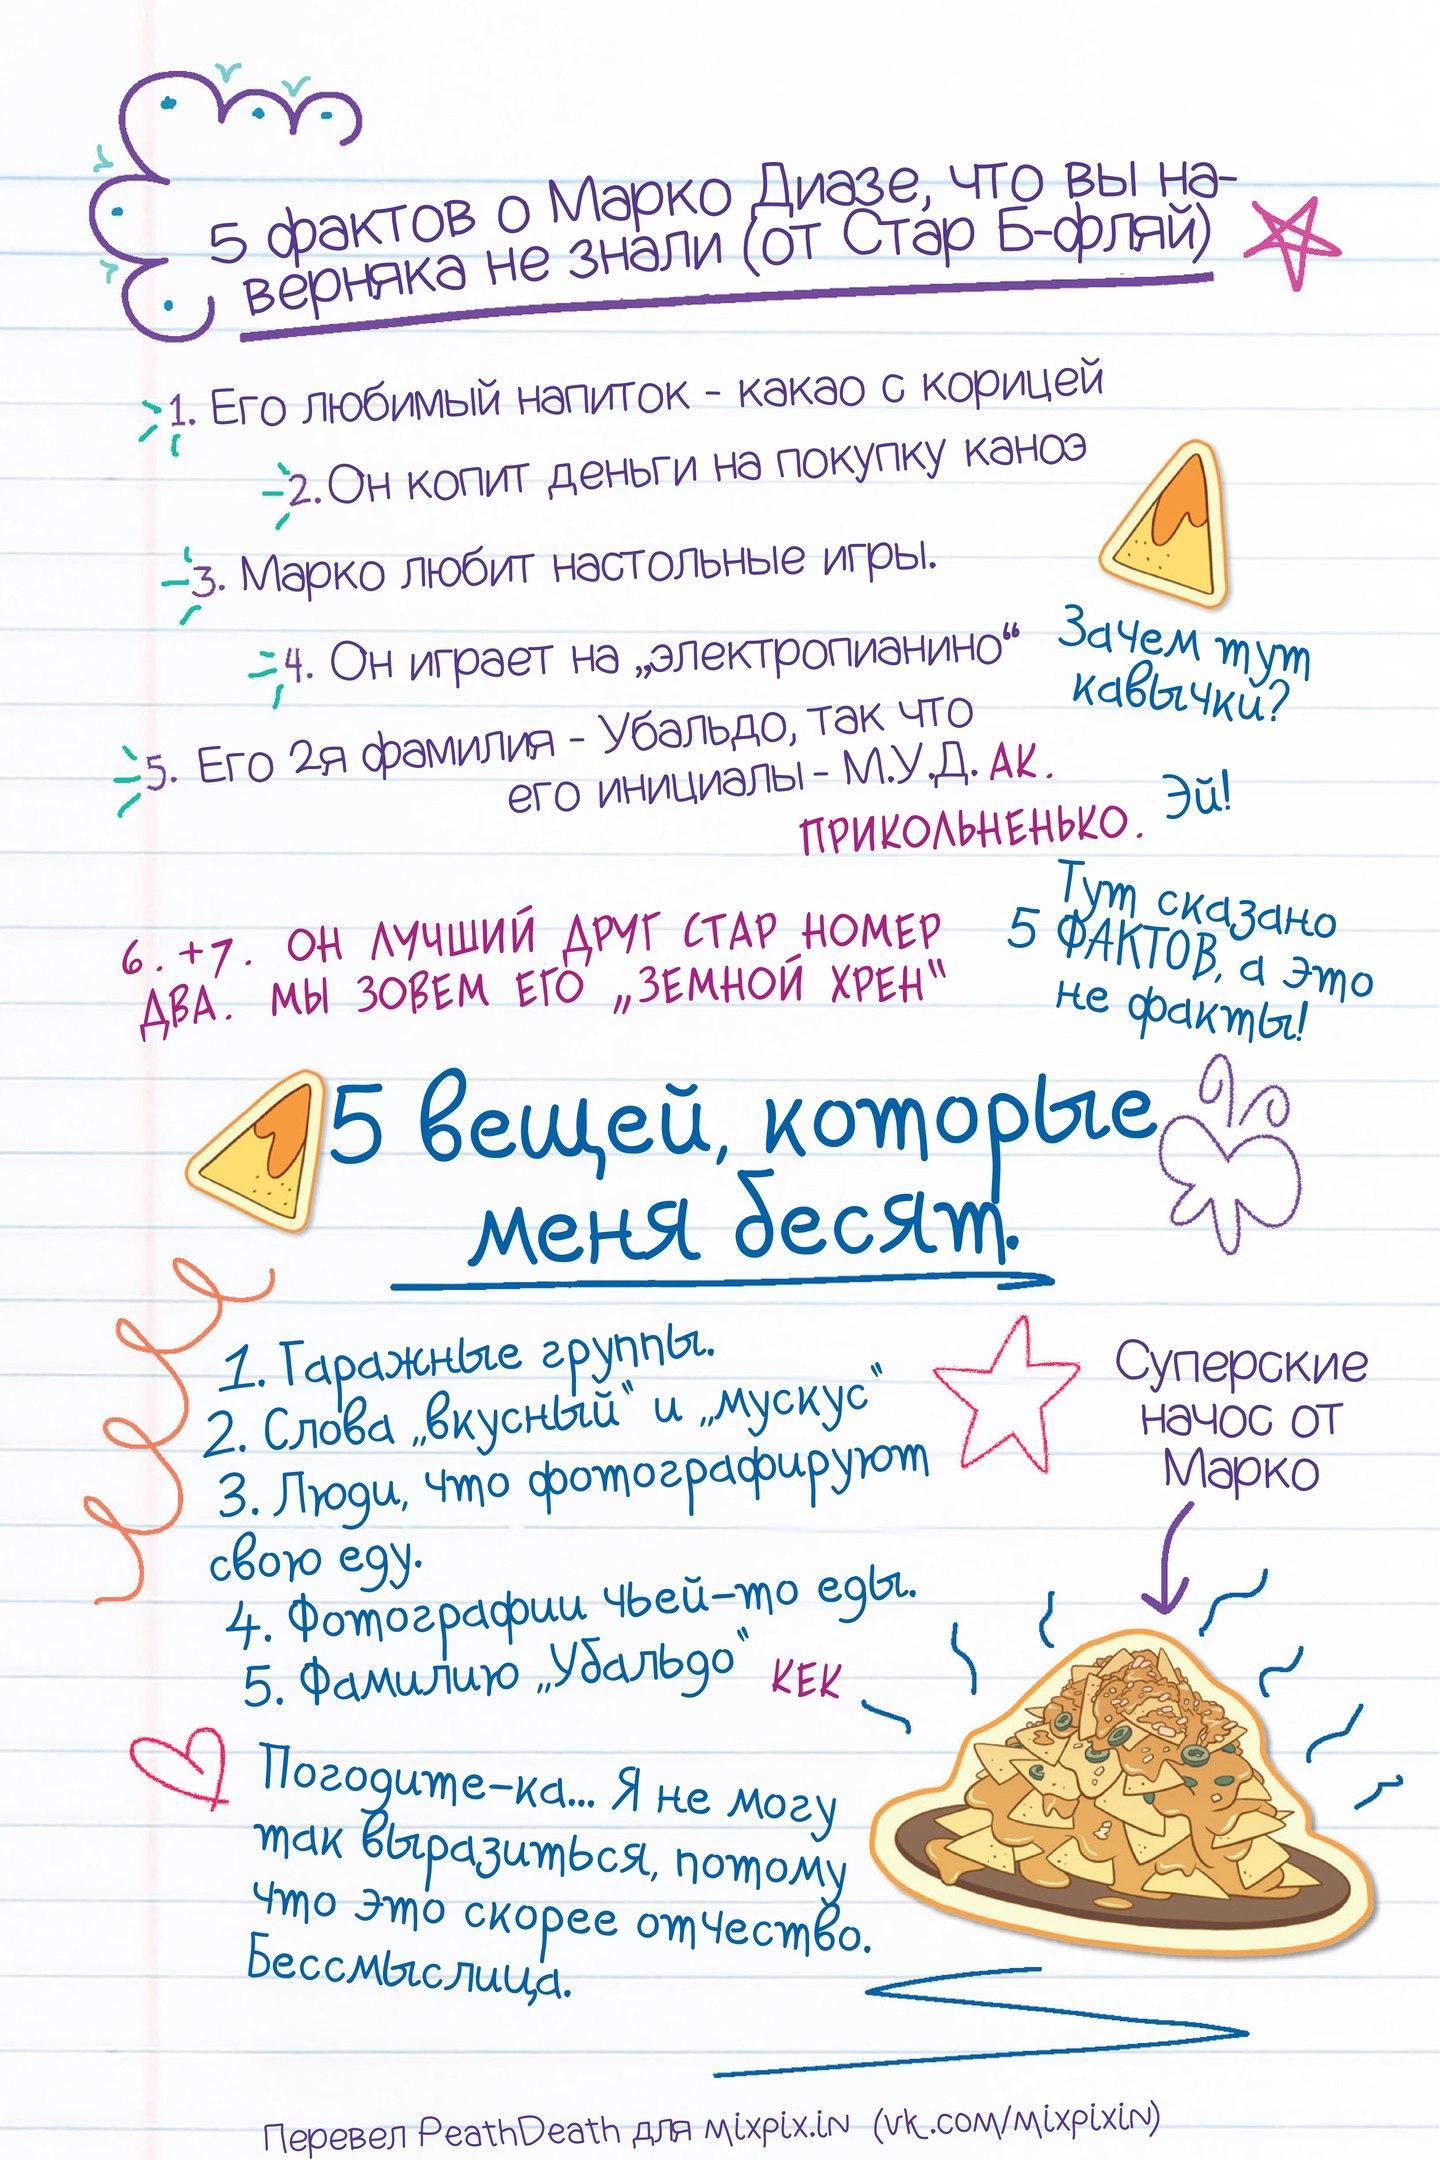 5 фактов о Марко Диазе, что вы на-
верняка не знали (от Стар Б-фляй)
1. Его любимый напиток - какао с корицей
2. Он копит деньги на покупку каноэ
3. Марко любит настольные игры.
4. Он играет на „электропианино“
Зачем тут
кавычки?
5. Его 2я фамилия - Убальдо, так что
его инициалы - М.У.Д. АК.
ПРИКОЛЬНЕНЬКО.
Эй!
6. +7. ОН ЛУЧШИЙ ДРУГ СТАР НОМЕР
ДВА. МЫ ЗОВЕМ ЕГО „ЗЕМНОЙ ХРЕН“
Тут сказано
5 ФАКТОВ, а это
не факты!
5 вещей, которые
меня бесят.
1. Гаражные группы.
2. Слова „вкусный“ и „мускус“
3. Люди, что фотографируют
свою еду.
4. Фотографии чьей-то еды.
5. Фамилию „Убальдо“ КЕК
Суперские
начос от
Марко
Погодите-ка... Я не могу
так выразиться, потому
что это скорее отчество.
Бессмыслица.
Перевел PeathDeath для mixpix.in (vk.com/mixpixin)